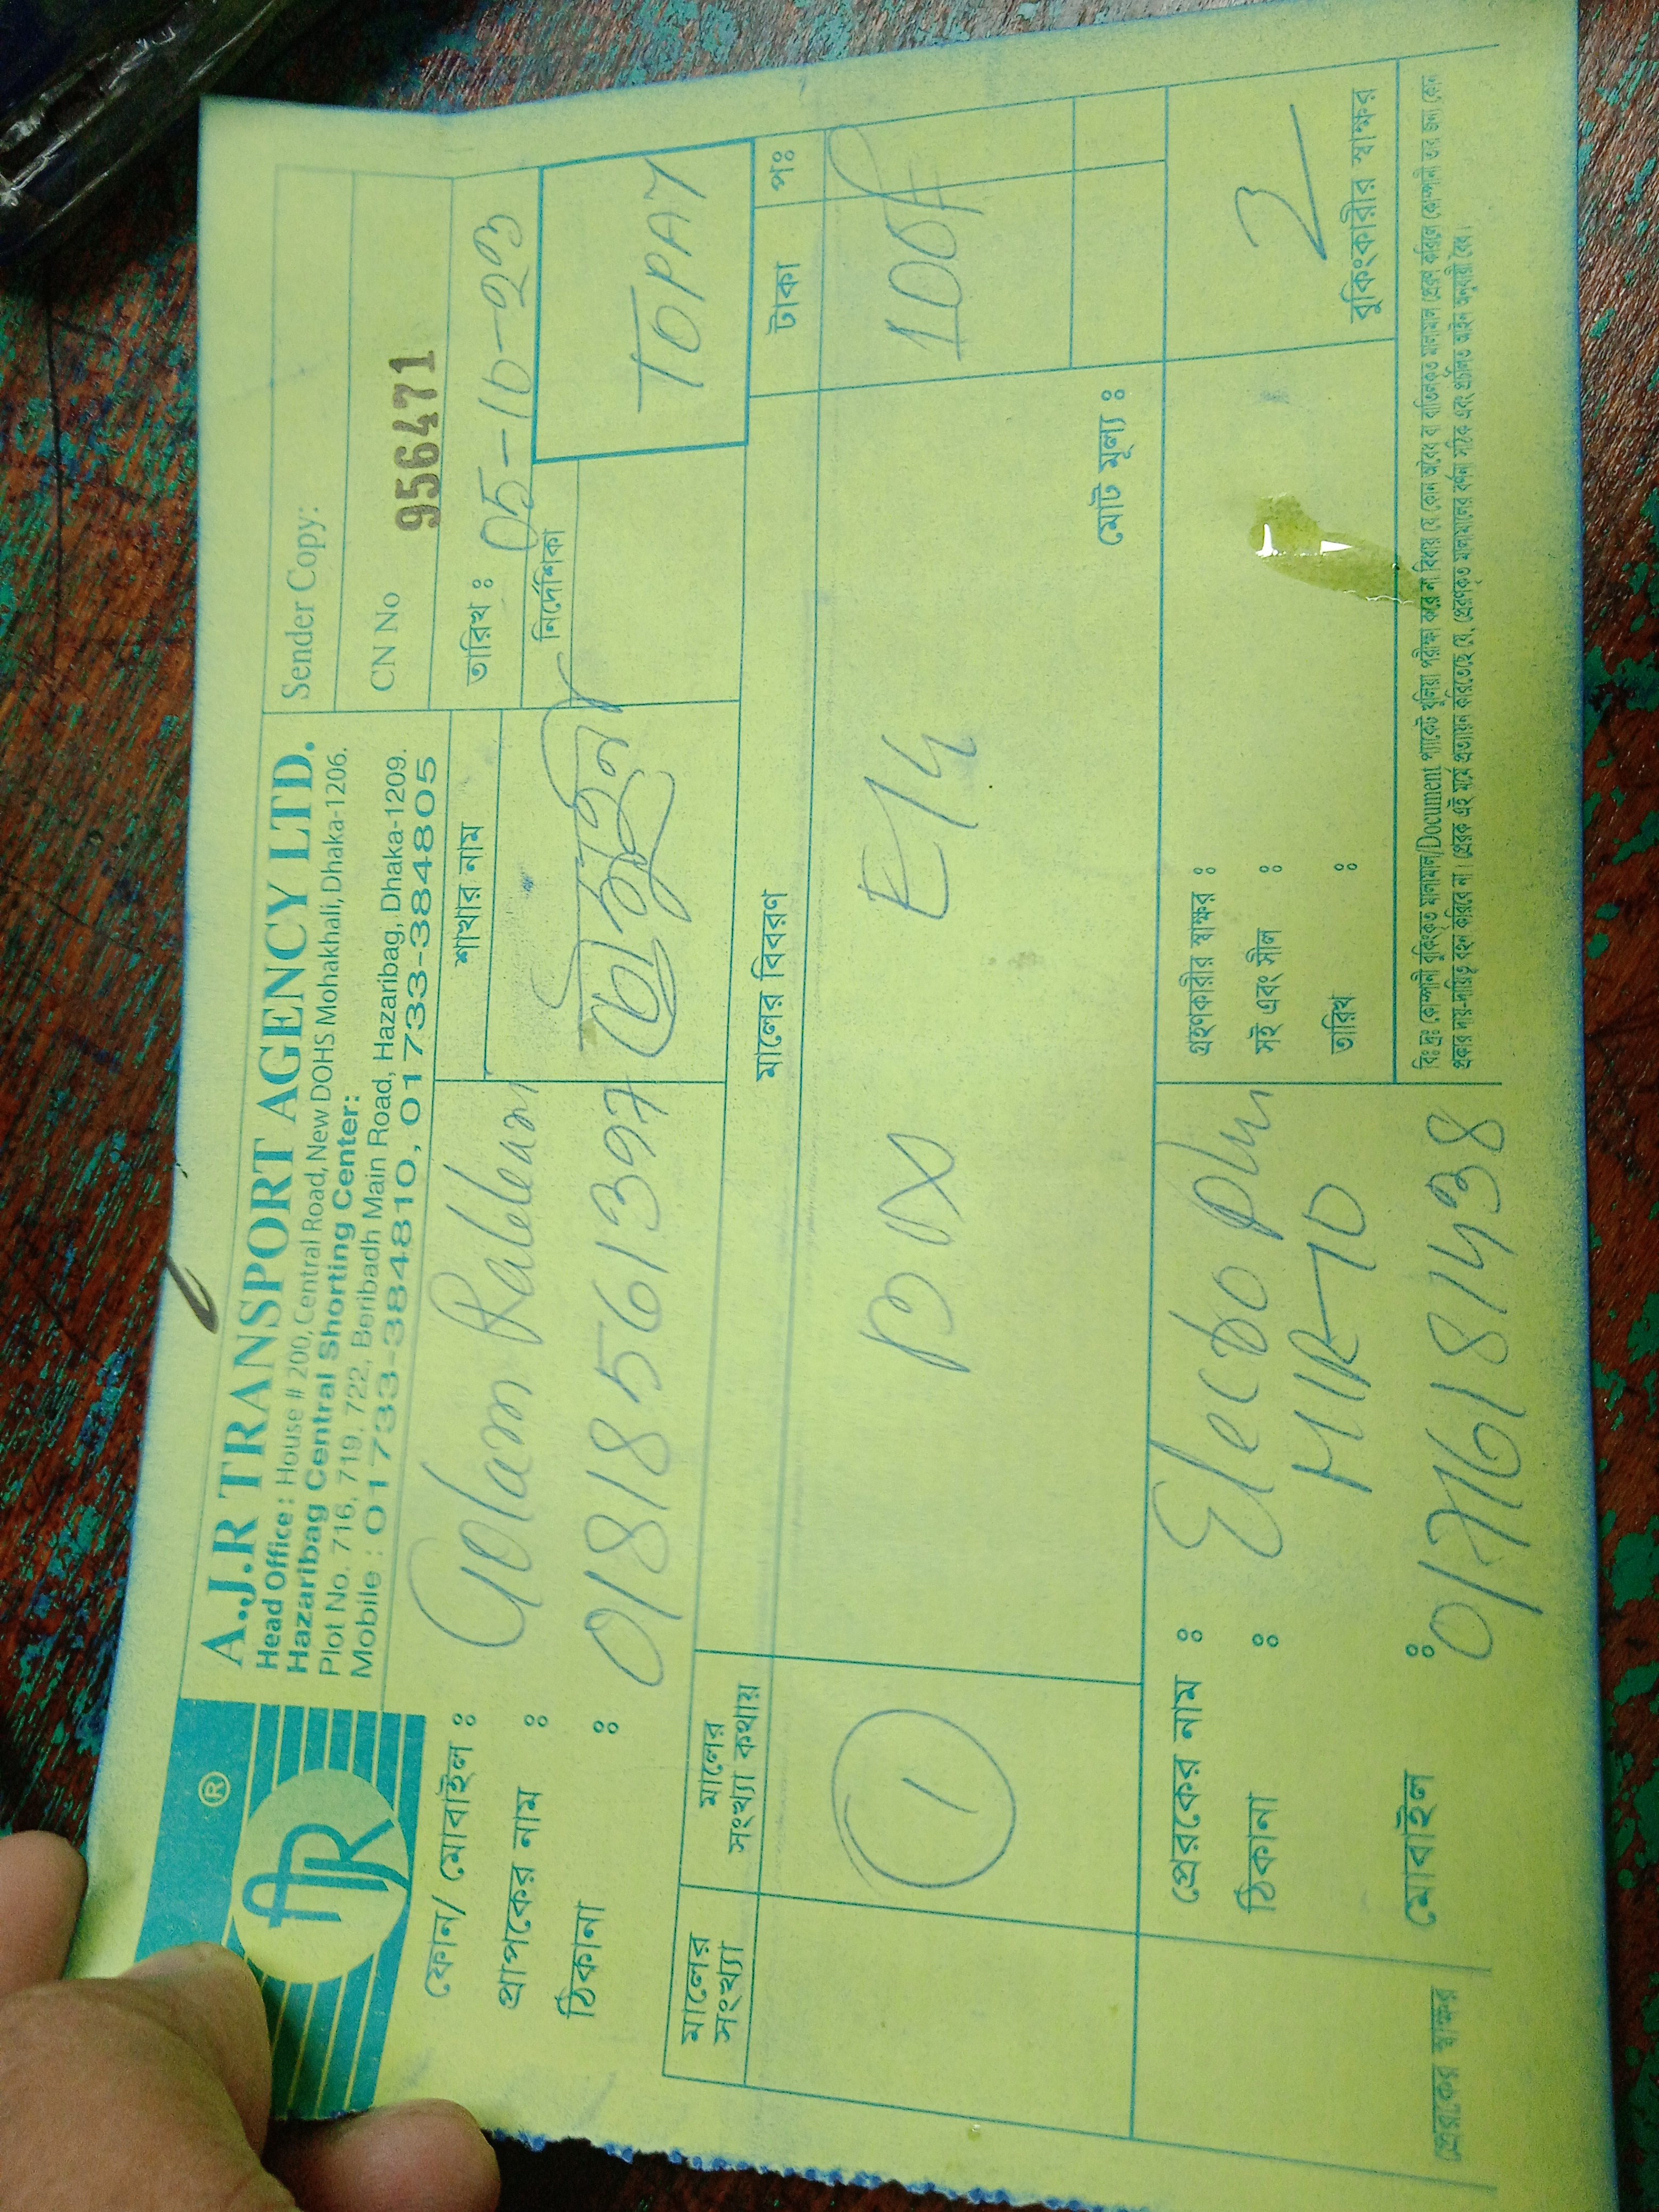 ®
A.J.R TRANSPORT AGENCY LTD.
Head Office : House # 200, Central Road, New DOHS Mohakhali, Dhaka-1206.
Hazaribag Central Shorting Center:
Plot No. 716, 719, 722, Beribadh Main Road, Hazaribag, Dhaka-1209.
Mobile : 01733-384810, 01733-384805
Sender Copy:
CN No 956471
তারিখ : 05-10-23
নির্দেশিকা
TOPAY
ফোন/ মোবাইল :
প্রাপকের নাম :
ঠিকানা :
Golam
01818561397
শাখার নাম
চৌমুহনী
মালের সংখ্যা
মালের সংখ্যা কথায়
মালের বিবরণ
টাকা
পঃ
1
E14
100/
মোট মূল্য :
প্রেরকের নাম :
ঠিকানা :
MIR-10
মোবাইল : 01761814938
গ্রহণকারীর স্বাক্ষর :
সই এবং সীল :
তারিখ :
প্রেরকের স্বাক্ষর
বুকিংকারীর স্বাক্ষর
বিঃ দ্রঃ কোম্পানী বুকিংকৃত মালামাল/Document প্যাকেট খুলিয়া পরীক্ষা করে না বিধায় যে কোন অবৈধ বা বাতিলকৃত মালামাল প্রেরণ করিলে কোম্পানী তার জন্য কোন
প্রকার দায়-দায়িত্ব বহন করিবে না। প্রেরক এই মর্মে প্রত্যয়ন করিতেছে যে, প্রেরণকৃত মালামালের বর্ণনা সঠিক এবং প্রচলিত আইন অনুযায়ী বৈধ।